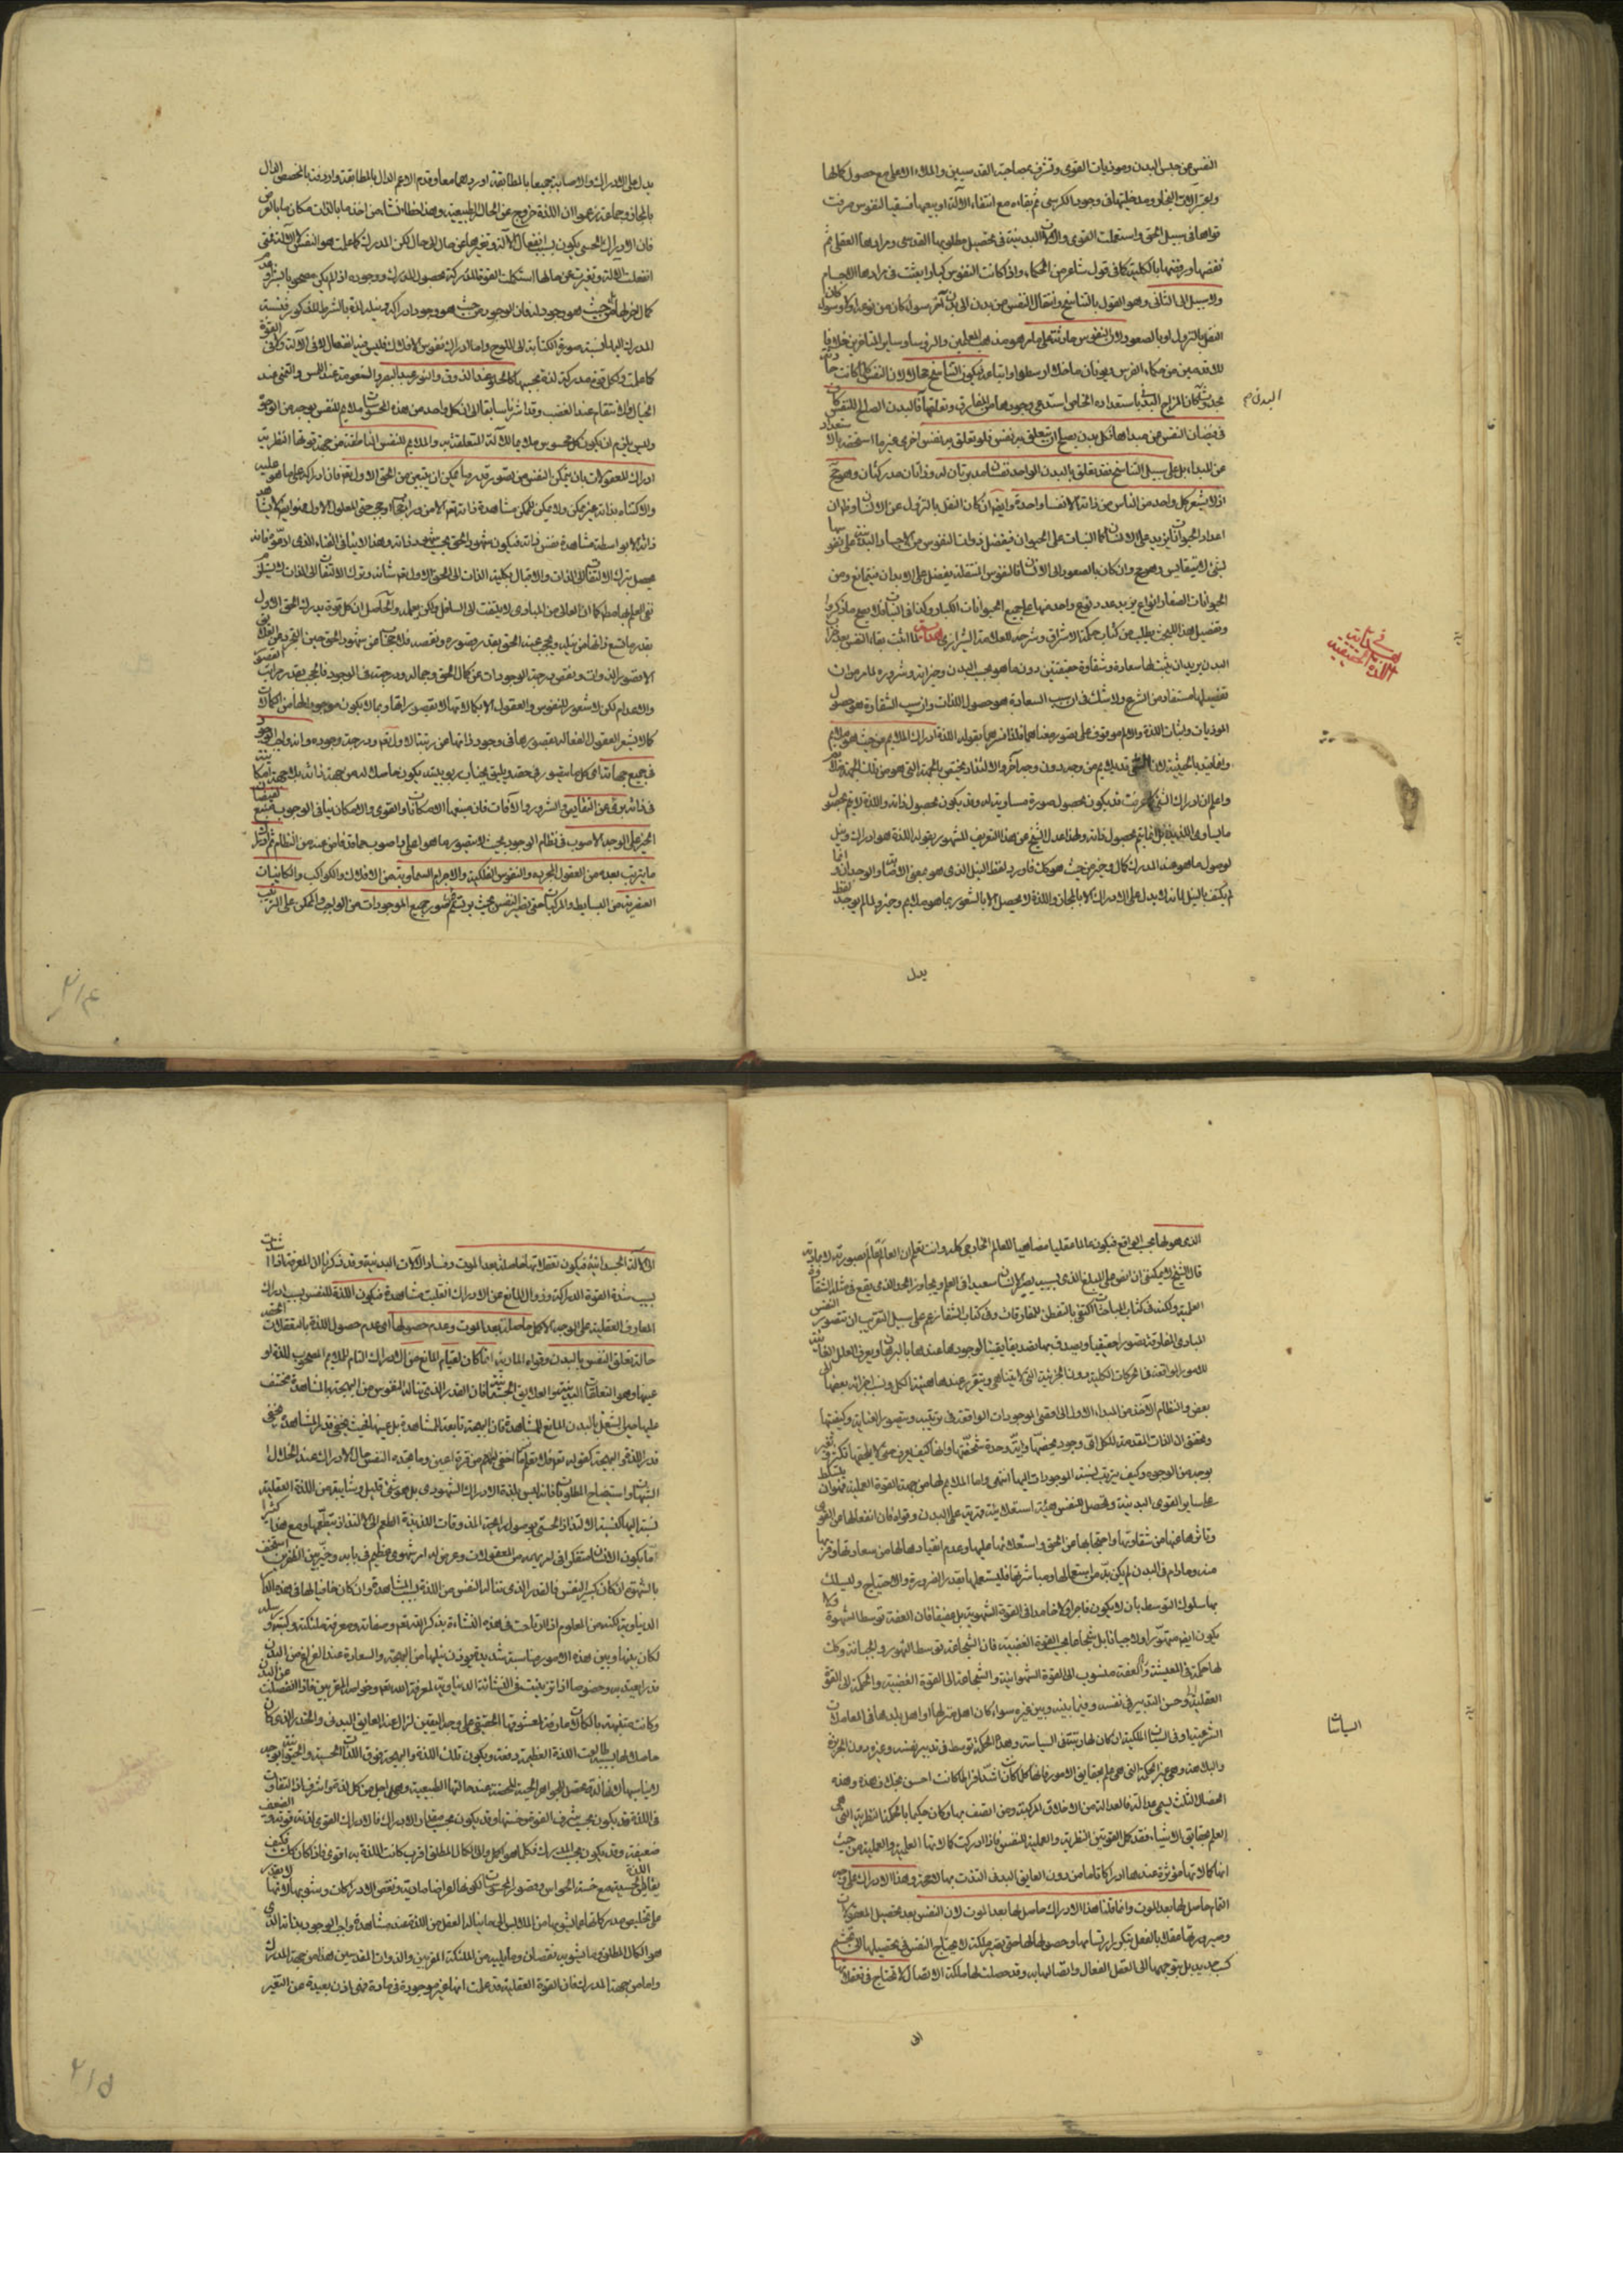 النفس عن حبس البدن وموذيات القوى وتشرف بمصاحبة القديسين والملاء الاعلى مع حصول كمالها
قواها فى سبيل الحق واستعملت القوى والالات البدنية فى تحصيل مطلوبها القدسى ومرادها العقلى ثم
نفضها ورفضها بالكلية كما فى قول شاعر من الحكماء واذا كانت النفوس كبارا تعبت فى مرادها الاجسام
ولا سبيل الى الثانى وهو القول بالتناسخ وانتقال النفس من بدن الى بدن آخر سواء كان من نوعه او لا وسواء كان
النقل بالنزول او بالصعود لان النفوس حادثة على ما مر هو مذهب المعلمين والرؤسا وساير المتأخرين خلافا
للاقدمين من حكماء الفرس ويونان ما خلا ارسطو واتباعه فيكون التناسخ محالا لان النفس لما كانت حادثة
فيضان النفس من مبدأها فكل بدن يصلح ان يتعلق به نفس فلو تعلق به نفس اخرى غير ما استحقه باستعداد
من المبداء بل على سبيل التناسخ فقد تعلق بالبدن الواحد نفسان مدبرتان له وذاتان مدركتان وهو مح
اذ لا يشعر كل واحد من الناس من ذاته الا نفسا واحدة وايضا ان كان النقل بالنزول عن الانسان وظ ان
اعداد الحيوانات يزيد على الانسان كما النبات على الحيوان فيفضل ذوات النفوس من الاجساد البدنية على نفوسها
الحيوانات الصغار انواع يزيد عدد نوع واحد منها على جميع الحيوانات الكبار وكذا فى النبات فلا يصح ما ذكروا
وتفصيل هذا البحث يطلب من كتاب حكمة الاشراق وشرحه للعلامة الشيرازى هداية لما اثبت بقاء النفس بعد خراب
البدن يريد ان يثبت لها سعادة وشقاوة حقيقتين دون ما هو بحسب البدن وخيراته وشروره لما مر من ان
تفصيلها مستفاد من الشرع ولا شك فى ان سبب السعادة هو حصول اللذات وان سبب الشقاوة هو حصول
الموذيات واثبات اللذة والالم موقوف على تصور معناهما فلذا فسرهما بقوله اللذة ادراك الملايم من حيث هو ملايم
واعلم ان ادراك الشئ كما عرفت قد يكون بحصول صورة مساوية له وقد يكون بحصول ذاته واللذة لا يتم بحصول
ما يساوى اللذيذ بل انما يتم بحصول ذاته ولهذا عدل الشيخ عن هذا التعريف المشهور بقوله اللذة هو ادراك ونيل
لوصول ما هو عند المدرك كمال وخير من حيث هو كك فاورد لفظ النيل الذى هو بمعنى الاصابة والوجدان وانما
لم يكتف بالنيل لانه لا يدل على الادراك الا بالمجاز واللذة لا يحصل الا بالشعور بما هو ملايم وخير ولما لم يوجد لفظ
يدل
البدنى م
فى اثبات اللذة الحقيقية
يدل على الادراك والاصابة جميعا بالمطابقة اورد هما معا وقدم الاعم الدال بالمطابقة واردفه بالمخصص الدال
بالمجاز وجماعة زعموا ان اللذة خروج عن الحال الطبيعية وهذا خطاء نشاء من اخذ ما بالذات مكان ما بالعرض
فان الادراك الحسى يكون بسبب انفعال الالة وتغيرها من حال الى حال لكن المدرك كما علمت هو النفس لا الالة فمتى
انفعلت الالة وتغيرت عن حالها استكملت القوة المدركة بحصول المدرك ووجوده اذا لم يكن مصحوبا بشر
كمال لانفعالها من حيث هو وجود له فان الوجود من حيث هو وجود ادراكه ونيله لذة بالشرط المذكور فنسبة
المدرك اليها نسبة صورة الكتابة الى اللوح واما ادراك نفوس الافلاك فليس فيها انفعال لا فى الالة ولا فى القوة
كما علمت ولكل قوة مدركة لذة بحسبها كالحلو عند الذوق والنور عند البصر والنعومة عند اللمس والتمنى عند
الخيال والانتقام عند الغضب وقد اشرنا سابقا الى ان كل واحد من هذه المحسوسات ملايم للنفس بوجه من الوجوه
وليس يلزم ان يكون كل محسوس ملايما لالة المتعلقة به والملايم للنفس الناطقة من جهة قوتها النظرية
ادراك المعقولات بان يتمكن النفس من تصور قدر ما يمكن ان يتبين من الحق الاول تعالى فان ادراكه على ما هو عليه
والاكتناه بذاته غير ممكن ولا يمكن للممكن مشاهدة ذاته تعالى الا من وراء حجاب او حجب حتى المعلول الاول فهو ايضا لا يشاهد
ذاته الا بواسطة مشاهدة نفس ذاته فيكون شهود الحق بحسب شهود ذاته وهذا لا ينافى الفناء الذى ادعوه فانه
يحصل بترك الالتفات الى الذات والاقبال بكلية الذات الى الحق الاول تعالى شانه وترك الالتفات الى الذات لا يستلزم
نفى العلم بها مطلقا كما ان العالى من المبادى لا يلتفت الى السافل ولكن يعلمه والحاصل ان كل قوة يدرك الحق الاول
لا قصور الذوات ونقص درجة الوجودات عن كمال الحق وجماله ودرجته فى الوجود فالحجب بعدد مراتب القصور
والاعدام لكن لا شعور للنفوس والعقول الا بكمالاتها لا بقصوراتها وبما لا يكون موجودا لها من الكمالات
كما لا يشعر العقول الفعالة بقصورها فى وجود ذاتها من رتبة الاول تعالى ودرجة وجوده وانه واجب الوجود
فى جميع جهاته اى كل ما يتصور فى حقه ويليق بجناب ربوبيته يكون حاصلا له من جهة ذاته بلا جهة امكانية
فى ذاته برئ عن النقايص والشرور والآفات فان منبعها الامكانات والقوى والامكان ينافى الوجوب منبع لفيضان
الخير على الوجه الاصوب فى نظام الوجود بحيث لا يتصور ما هو اعلى واصوب مما قد فاض عنه من النظام ثم ادراك
ما يترتب بعده من العقول المجردة والنفوس الفلكية والاجرام السماوية من الافلاك والكواكب والكائنات
العنصرية من البسايط والمركبات حتى يصير النفس بحيث يرتسم صور جميع الموجودات من الواجب والممكن على الترتيب
٢١٤
الذى هو لها بحسب الواقع فيكون عالما عقليا مضاهيا للعالم الخارجى كله وانت تعلم ان العالم عالم بصورته لا بمادته
قال الشيخ لا يمكننى ان انص على المبلغ الذى بسببه يصير الانسان سعيدا فى العلم ويجاوز الحد الذى يقع فى مثله الشقاوة
العلمية ولكنه فى كتاب المباحثات اكتفى بالتفطن للمفارقات وفى كتاب الشفا زعم على سبيل التقريب ان تتصور النفس
المبادى المفارقة تصورا حقيقيا ويصدق بها تصديقا يقينيا لوجودها عندها بالبرهان ويعرف العلل الغائية
للامور الواقعة فى الحركات الكلية دون الجزئية التى لا يتناهى ويتقرر عندها هيئة الكل ونسب اجزائه بعضها الى
بعض والنظام الآخذ من المبداء الاول الى اقصى الموجودات الواقعة فى ترتيبه ويتصور العناية وكيفيتها
ويتحقق ان الذات المتقدمة للكل اى وجود يخصها واية وحدة تخصها وانها كيف يعرف حتى لا يلحقها تكثر وتغير
بوجه من الوجوه وكيف يترتب نسبة الموجودات اليها انتهى واما الملايم لها من جهة القوة العملية فهو ان يتسلط
على ساير القوى البدنية ويحصل للنفس هيئة استعلائية قهرية على البدن وقواه فان انفعالها عن القوى
وتأثرها عنها من شقاوتها واحتجابها عن الحق واستعلائها عليها وعدم انقيادها لها من سعادتها وقربها
منه وما دام فى البدن لم يكن بد من استعمالها ومباشرتها فليستعملها بقدر الضرورة والاحتياج وليسلك
بها سلوك التوسط بان لا يكون فاجرا ولا خامدا فى القوة الشهوية بل عفيفا فان العفة توسط الشهوة ولا
يكون ايضا متهورا ولا جبانا بل شجاعا بحسب القوة الغضبية فان الشجاعة توسط التهور والجبانة وكك
لها حكمة فى المعيشة والعفة منسوب الى القوة الشهوانية والشجاعة الى القوة الغضبية والحكمة الى القوة
العقلية وحسن التدبير فى نفسه وفيما بينه وبين غيره سواء كان اهل منزلها او اهل بلدها فى المعاملات
الشرعية او فى السياسات الملكية ان كان لها رتبة فى السياسة وهذه الحكمة توسط فى تدبير نفسه وغيره بين الجربزة
والبلاهة وهى غير الحكمة التى هى علم بحقايق الامور فانها كلما كانت اشد افراطا كانت احسن بخلاف هذه وهذه
الخصال الثلث يسمى عدالة فالعدالة من الاخلاق المركبة ومن اتصف بها وكان حكيما بالحكمة النظرية التى هى
العلم بحقايق الاشياء فقد كمل القوتين النظرية والعملية النفس فاذا ادركت كمالاتها العلمية والعملية من حيث
انها كمالاتها مؤثرة عندها ادراكا تاما من دون العايق البدنى التذت بها لا محة وهذا الادراك على وجه
التمام حاصل لها بعد الموت وانما قلنا هذا الادراك حاصل لها بعد الموت لان النفس بعد تحصيل المعقولات
وصيرورتها عقلا بالفعل بتكرار ارتسامها وحصولها لها حتى يصير ملكة لا يحتاج النفس فى تحصيلها الى تجشم
كسب جديد بل بتوجهها الى العقل الفعال واتصالها به وقد حصلت لها ملكة الاتصال لا تحتاج فى تعقلاتها
الى
السياسات
الى الالة الجسدانية فيكون تعقلاتها حاصلة بعد الموت وفساد الالات البدنية وقد ذكرنا ان المعرفة اذا اشتدت
بسبب شدة القوة الدراكة وزوال المانع عن الادراك انقلبت مشاهدة فيكون اللذة للنفس بسبب ادراك
المعارف العقلية على الوجه الاكمل حاصلة بعد الموت وعدم حصولها اى عدم حصول اللذة بالتعقلات المختصة
حالة تعلق النفس بالبدن وقواه المادية انما كان لقيام المانع عن الادراك التام الملايم المصحوب للذة او
عينها وهو التعلقات البدنية والعلايق الجسمانية فان القدر الذى تناله النفوس من البهجة بالمشاهدة مختلف
عليها حين اشتغل بالبدن المانع للمشاهدة فان البهجة تابعة للمشاهدة بل عينها فحيث يخفى قدر المشاهدة يخفى
قدر اللذة والبهجة كقوله تعالى فلا تعلم نفس ما اخفى لهم من قرة اعين وما يجده النفس حال الادراك عند انحلال
الشبهات واستيضاح المطلوبات فانه ليس لذة الادراك الشهودى بل هو شئ قليل وشايبة من اللذة العقلية
نسبته اليها كنسبة التذاذ الحس بوصول رايحة المذوقات اللذيذة الطعم الى الالتذاذ بتطعمها ومع هذا كثيرا
ما يكون الانسان متفكرا فى امر يهمه من المعقولات وعرض له امر شهوى عظيم فى بابه وخير بين الظفرين استخف
بالشهوة ان كان كبير النفس فالقدر الذى تناله النفس من اللذة بسبب المشاهدة وان كان خافيا لها فى هذه الحالة
الدنياوية لكنه من المعلوم اذا ارتاحت فى هذه النشاءة بذكر الله تعالى وصفاته ومعرفة ملائكته وكتبه ورسله
لكان بينها وبين هذه الامور مناسبة شديدة يؤذن بنيلها من البهجة والسعادة عند الفراغ من البدن
وكانت متنبهة بالكمالات عارفة لمعشوقها الحقيقى على وجه اليقين لزال عنه العايق البدنى والخدر الذى كان
حاصلا لها بسببه طالعت اللذة العظيمة دفعة ويكون تلك اللذة والبهجة فوق اللذات الحسية والحيوانية بوجه
فى اللذة قد يكون بحسب شرف القوة وخستها وقد يكون بحسب مقدار الادراك فالادراك القوى لذته قوية والضعيف
ضعيفة وقد يكون بحسب المدرك فكل ما هو اكمل والى الكمال المطلق اقرب كانت اللذة به اقوى فاذا كان كك فكيف
يقاس اللذة الحسية مع خسة الحواس وقصور المحسوسات لكونها اعراضا مادية ونقص الادراكات وشوبها لانها لا يقدر
على تخليص مدركاتها عما يشوبها من الملابس الى ما يناله العقل من اللذة عند مشاهدة واجب الوجود بذاته الذى
هو الكمال المطلق وما يشوبه نقصان وما يليه من الملئكة المقربين والذوات المقدسين هذا من جهة المدرك
واما من جهة المدرك فان القوة العقلية قد علمت انها غير موجودة فى مادة فهى اذن بعيدة من التغير
٢١٥